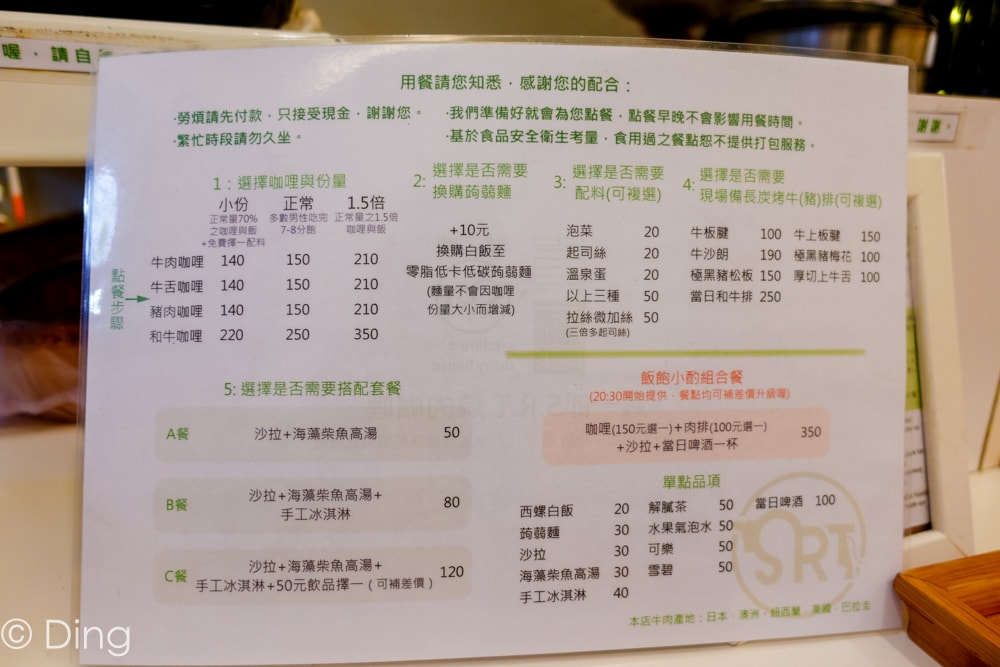 喔．請自
謝謝。
用餐請您知悉，感謝您的配合：
‧勞煩請先付款，只接受現金，謝謝您。
‧繁忙時段請勿久坐。
‧我們準備好就會為您點餐，點餐早晚不會影響用餐時間。
‧基於食品安全衛生考量，食用過之餐點恕不提供打包服務。
點餐步驟→
1：選擇咖哩與份量
小份 正常 1.5倍
正常量70% 多數男性吃完 正常量之1.5倍
之咖哩與飯 7-8分飽 咖哩與飯
+免費擇一配料
牛肉咖哩 140 150 210
牛舌咖哩 140 150 210
豬肉咖哩 140 150 210
和牛咖哩 220 250 350
2: 選擇是否需要
換購蒟蒻麵
+10元
換購白飯至
零脂低卡低碳蒟蒻麵
(麵量不會因咖哩
份量大小而增減)
3: 選擇是否需要
配料(可複選)
泡菜 20
起司絲 20
溫泉蛋 20
以上三種 50
拉絲微加絲 50
(三倍多起司絲)
4: 選擇是否需要
現場備長炭烤牛(豬)排(可複選)
牛板腱 100 牛上板腱 150
牛沙朗 190 極黑豬梅花 100
極黑豬松板 150 厚切上牛舌 100
當日和牛排 250
5: 選擇是否需要搭配套餐
A餐 沙拉+海藻柴魚高湯 50
B餐 沙拉+海藻柴魚高湯+
手工冰淇淋 80
C餐 沙拉+海藻柴魚高湯+
手工冰淇淋+50元飲品擇一（可補差價） 120
飯飽小酌組合餐
(20:30開始提供，餐點均可補差價升級喔)
咖哩(150元選一)+肉排(100元選一)
+沙拉+當日啤酒一杯 350
單點品項
西螺白飯 20 解膩茶 50 當日啤酒 100
蒟蒻麵 30 水果氣泡水 50
沙拉 30 可樂 50
海藻柴魚高湯 30 雪碧 50
手工冰淇淋 40
SRT
本店牛肉產地：日本、澳洲、紐西蘭、美國、巴拉圭
© Ding